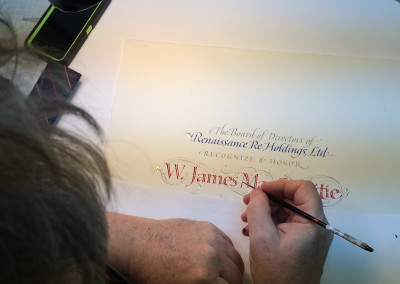 The Board of Directors of
Renaissance Re Holdings, Ltd.
RECOGNIZE & HONOR
W. James